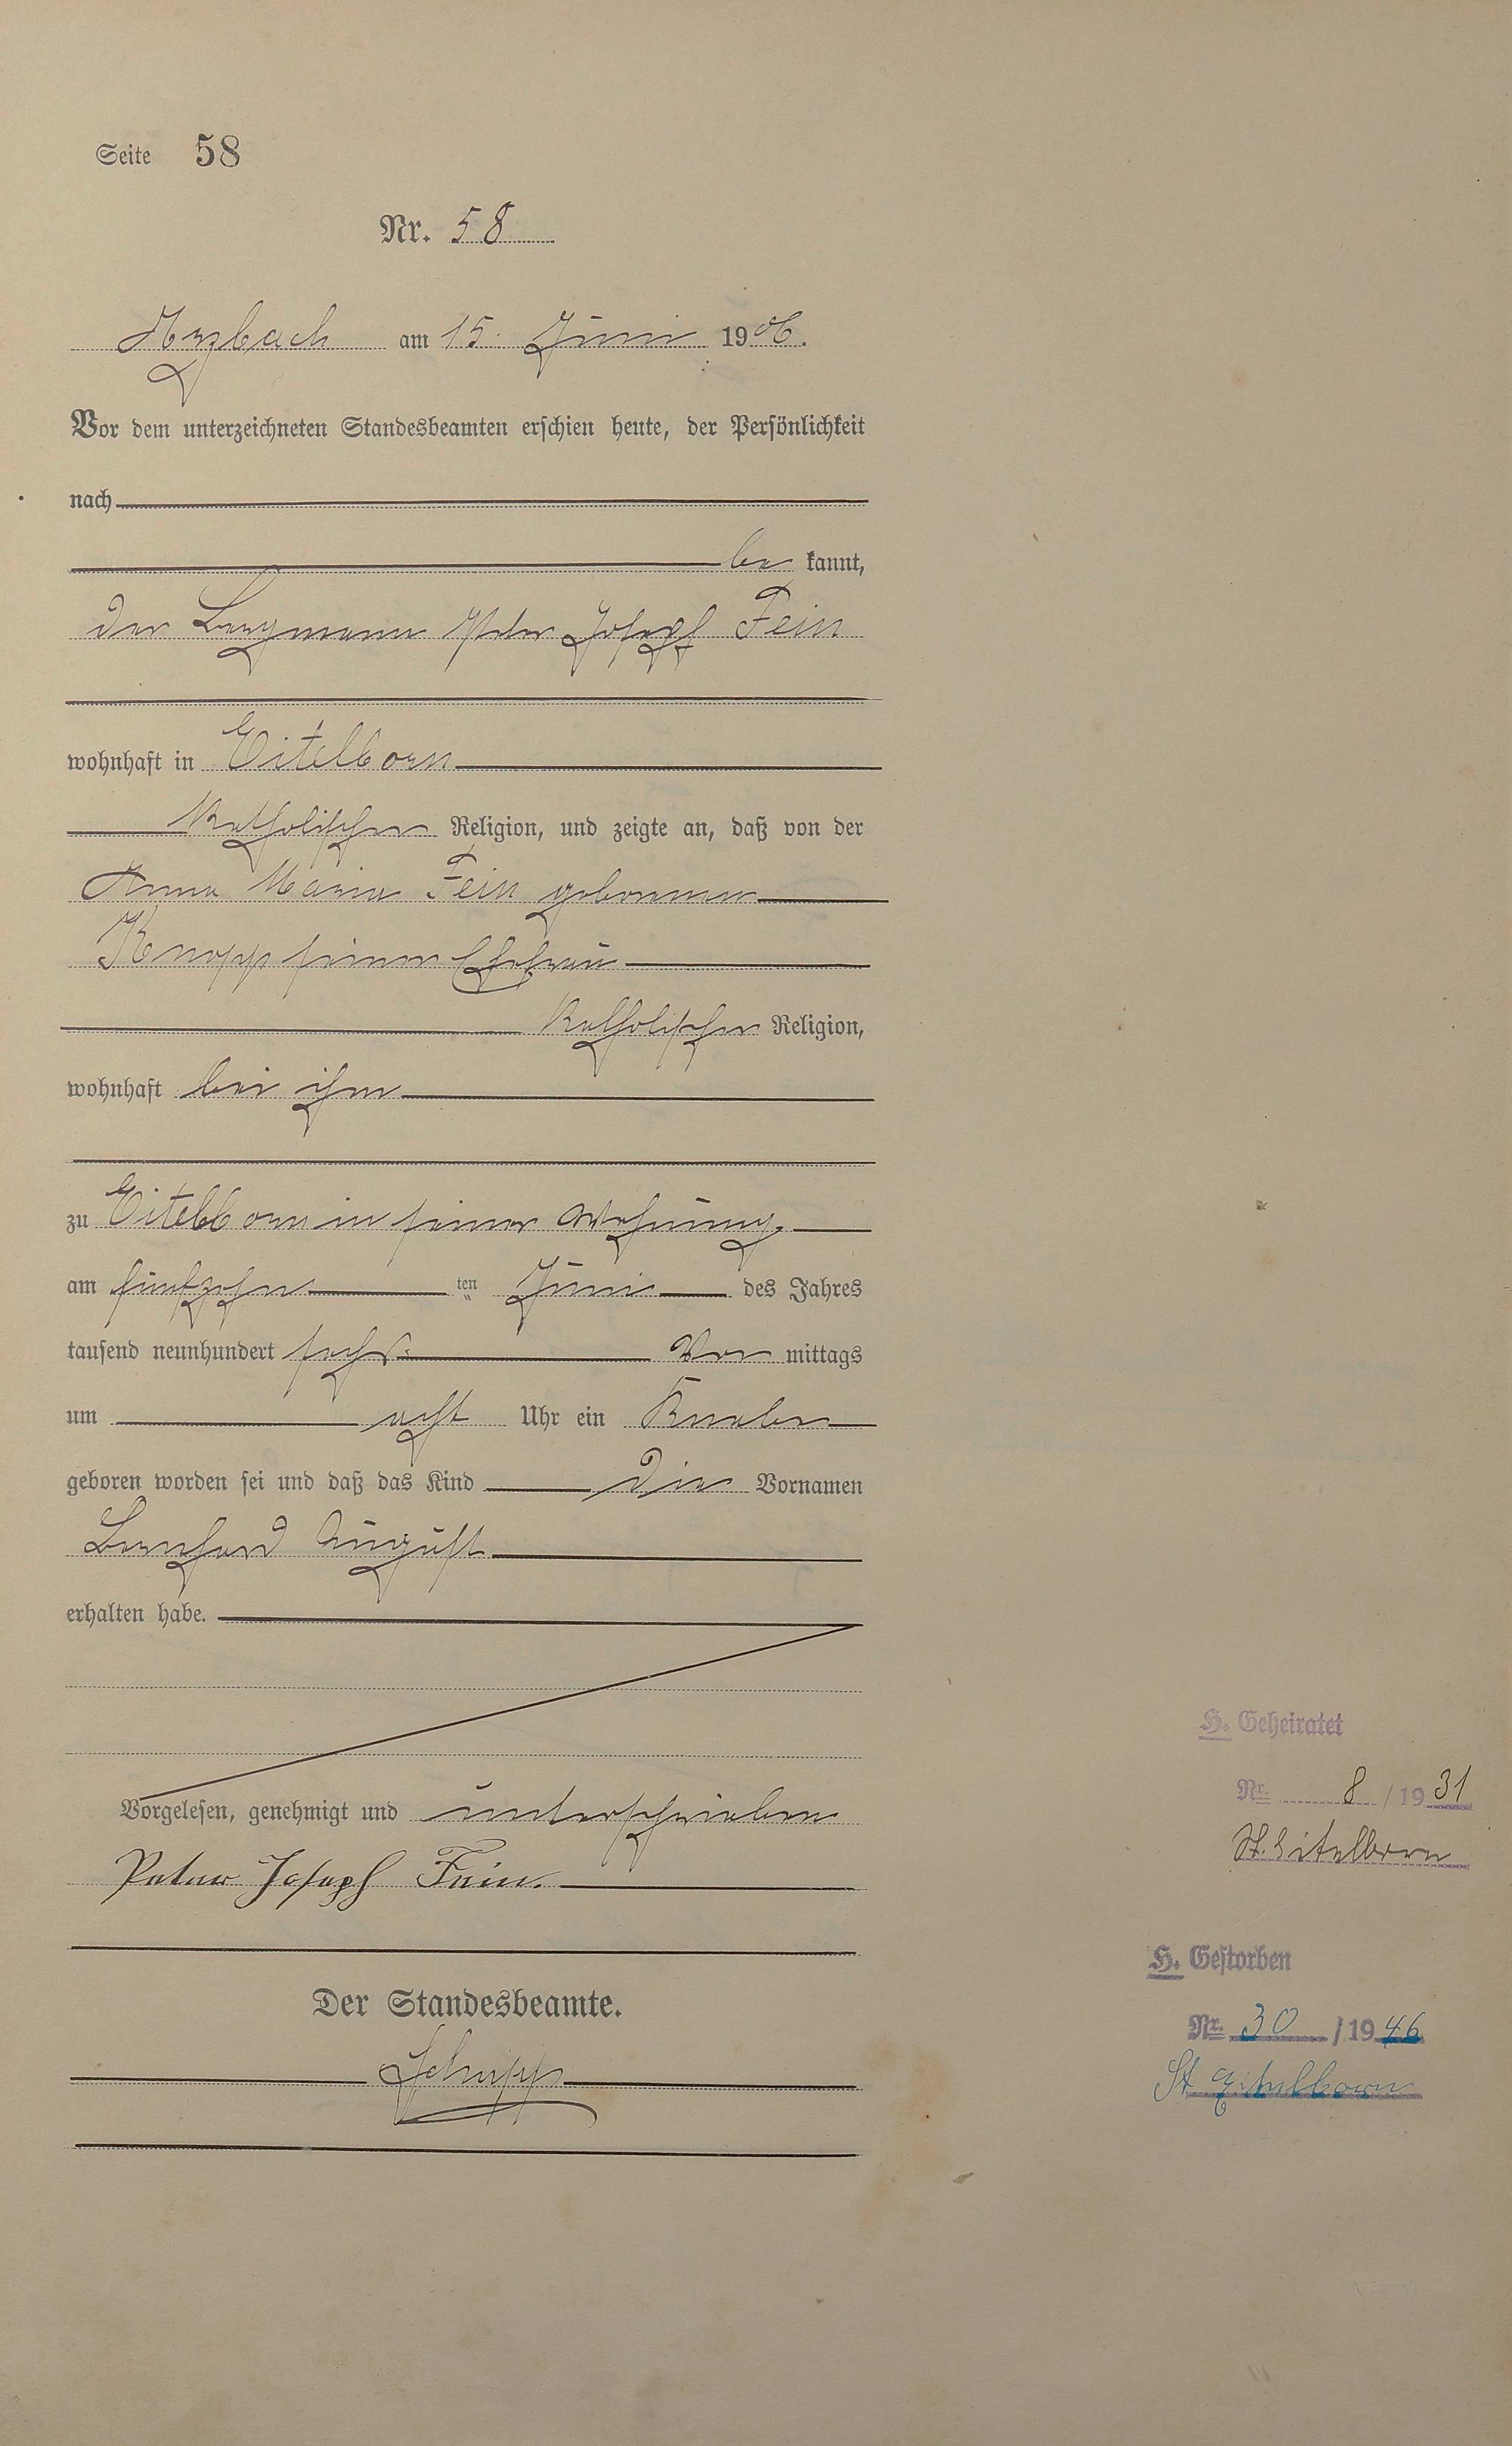 Seite 58
Nr. 58
Arzbach am 15. Juni 1906.
Vor dem unterzeichneten Standesbeamten erschien heute, der Persönlichkeit
nach
be kannt,
der Bergmann Peter Josef Fein
wohnhaft in Eitelborn
katholischer Religion, und zeigte an, daß von der
Anna Maria Fein geborenen
Knopp seiner Ehefrau
katholischer Religion,
wohnhaft bei ihm
zu Eitelborn in seiner Wohnung
am fünfzehn ten Juni des Jahres
tausend neunhundert sechs Vor mittags
um acht Uhr ein Knabe
geboren worden sei und daß das Kind die Vornamen
Bernhard August
erhalten habe.
Vorgelesen, genehmigt und unterschrieben
Peter Joseph Fein.
Der Standesbeamte.
Schupp
H. Geheiratet
Nr. 8 / 1931
St. Eitelborn
H. Gestorben
Nr. 30 / 1946
St Eitelborn